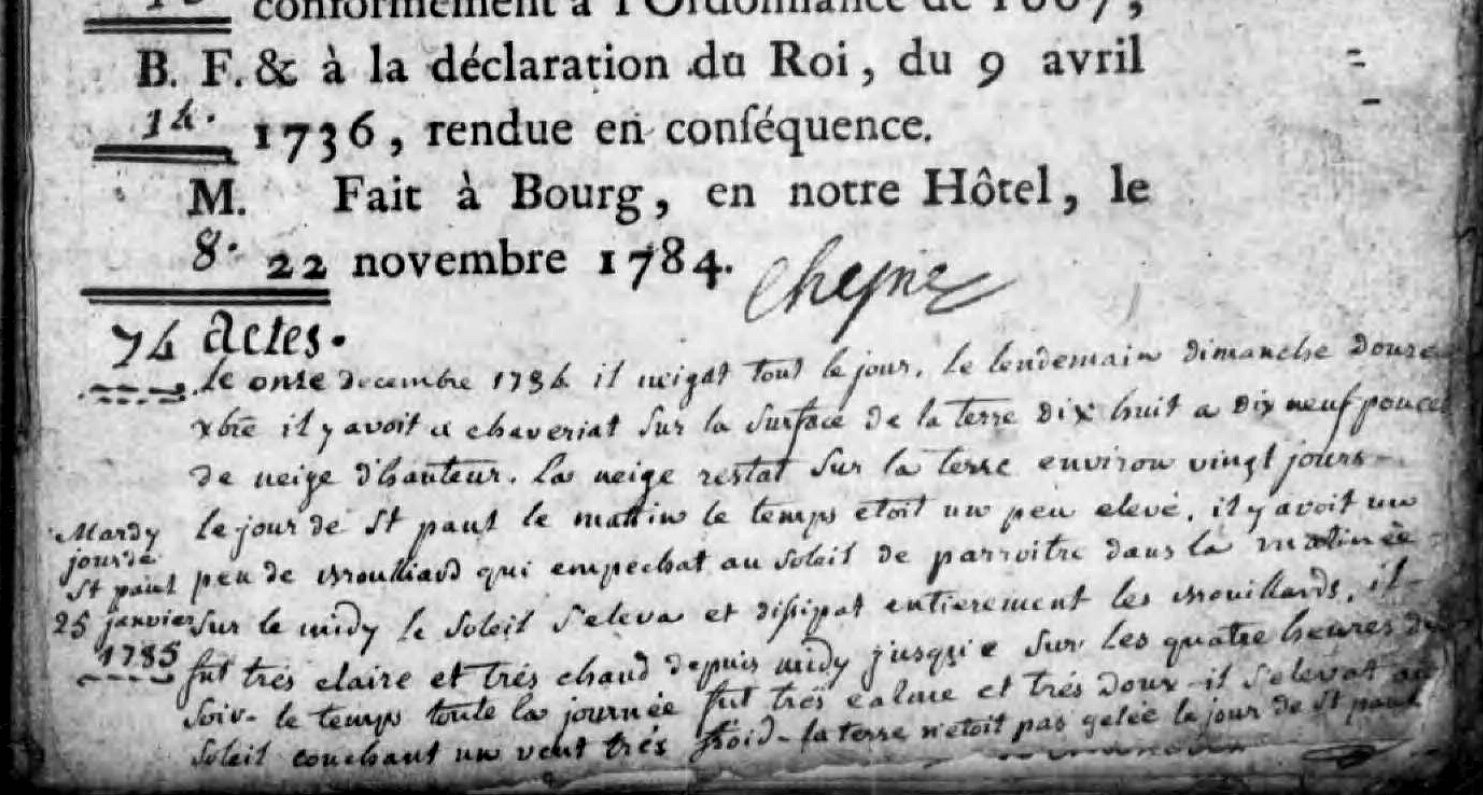 conformément à l'Ordonnance de 1667,
B. F. & à la déclaration du Roi, du 9 avril
14. 1736, rendue en conſéquence.
M. Fait à Bourg, en notre Hôtel, le
8. 22 novembre 1784.
74 actes.
le onze decembre 1784 il neigat tout le jour. le lendemain dimanche douze
xbre il y avoit a chaveriat sur la surface de la terre dix huit a dix neuf pouces
de neige d'hauteur. La neige restat sur la terre environ vingt jours
Mardy
jour de
St paul
25 janvier
1785
le jour de St paul le matin le temps etoit un peu elevé, il y avoit un
peu de brouilliard qui empechat au soleil de parroitre dans la matinée
sur le midy le soleil s'eleva et dissipat entierement les brouillards, il
fut très claire et très chaud depuis midy jusque sur les quatre heures du
soir - le temps toute la journée fut très calme et très doux - il s'elevat au
soleil couchant un vent très froid - la terre n'etoit pas gelée le jour de St paul